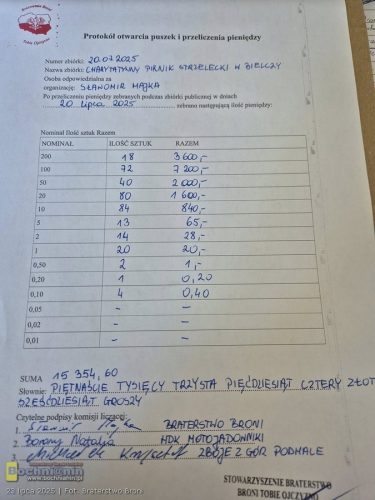 Braterstwo Broni
Tobie Ojczyzno
Protokół otwarcia puszek i przeliczenia pieniędzy
Numer zbiórki: 20.07.2025
Nazwa zbiórki: CHARYTATYWNY PIKNIK STRZELECKI W BIELCZY
Osoba odpowiedzialna za
organizację: SŁAWOMIR MAJKA
Po przeliczeniu pieniędzy zebranych podczas zbiórki publicznej w dniach
20 lipca 2025 zebrano następującą ilość pieniędzy:
Nominał Ilość sztuk Razem
NOMINAŁ ILOŚĆ SZTUK RAZEM
200 18 3600,-
100 72 7200,-
50 40 2000,-
20 80 1600,-
10 84 840,-
5 13 65,-
2 14 28,-
1 20 20,-
0,50 2 1,-
0,20 1 0,20
0,10 4 0,40
0,05 - -
0,02 - -
0,01 - -
SUMA 15 354,60
Słownie: PIĘTNAŚCIE TYSIĘCY TRZYSTA PIĘĆDZIESIĄT CZTERY ZŁOT
SZEŚĆDZIESIĄT GROSZY
Czytelne podpisy komisji liczącej:
1. Sławomir Majka BRATERSTWO BRONI
2. Natalia HDK MOTOJADOWNIKI
3. Krzysztof ZBÓJE Z GÓR PODHALE
STOWARZYSZENIE BRATERSTWO
BRONI TOBIE OJCZYZNO
Bochnianin
www.bochnianin.pl
23 lipca 2025 | Fot. Braterstwo Broni